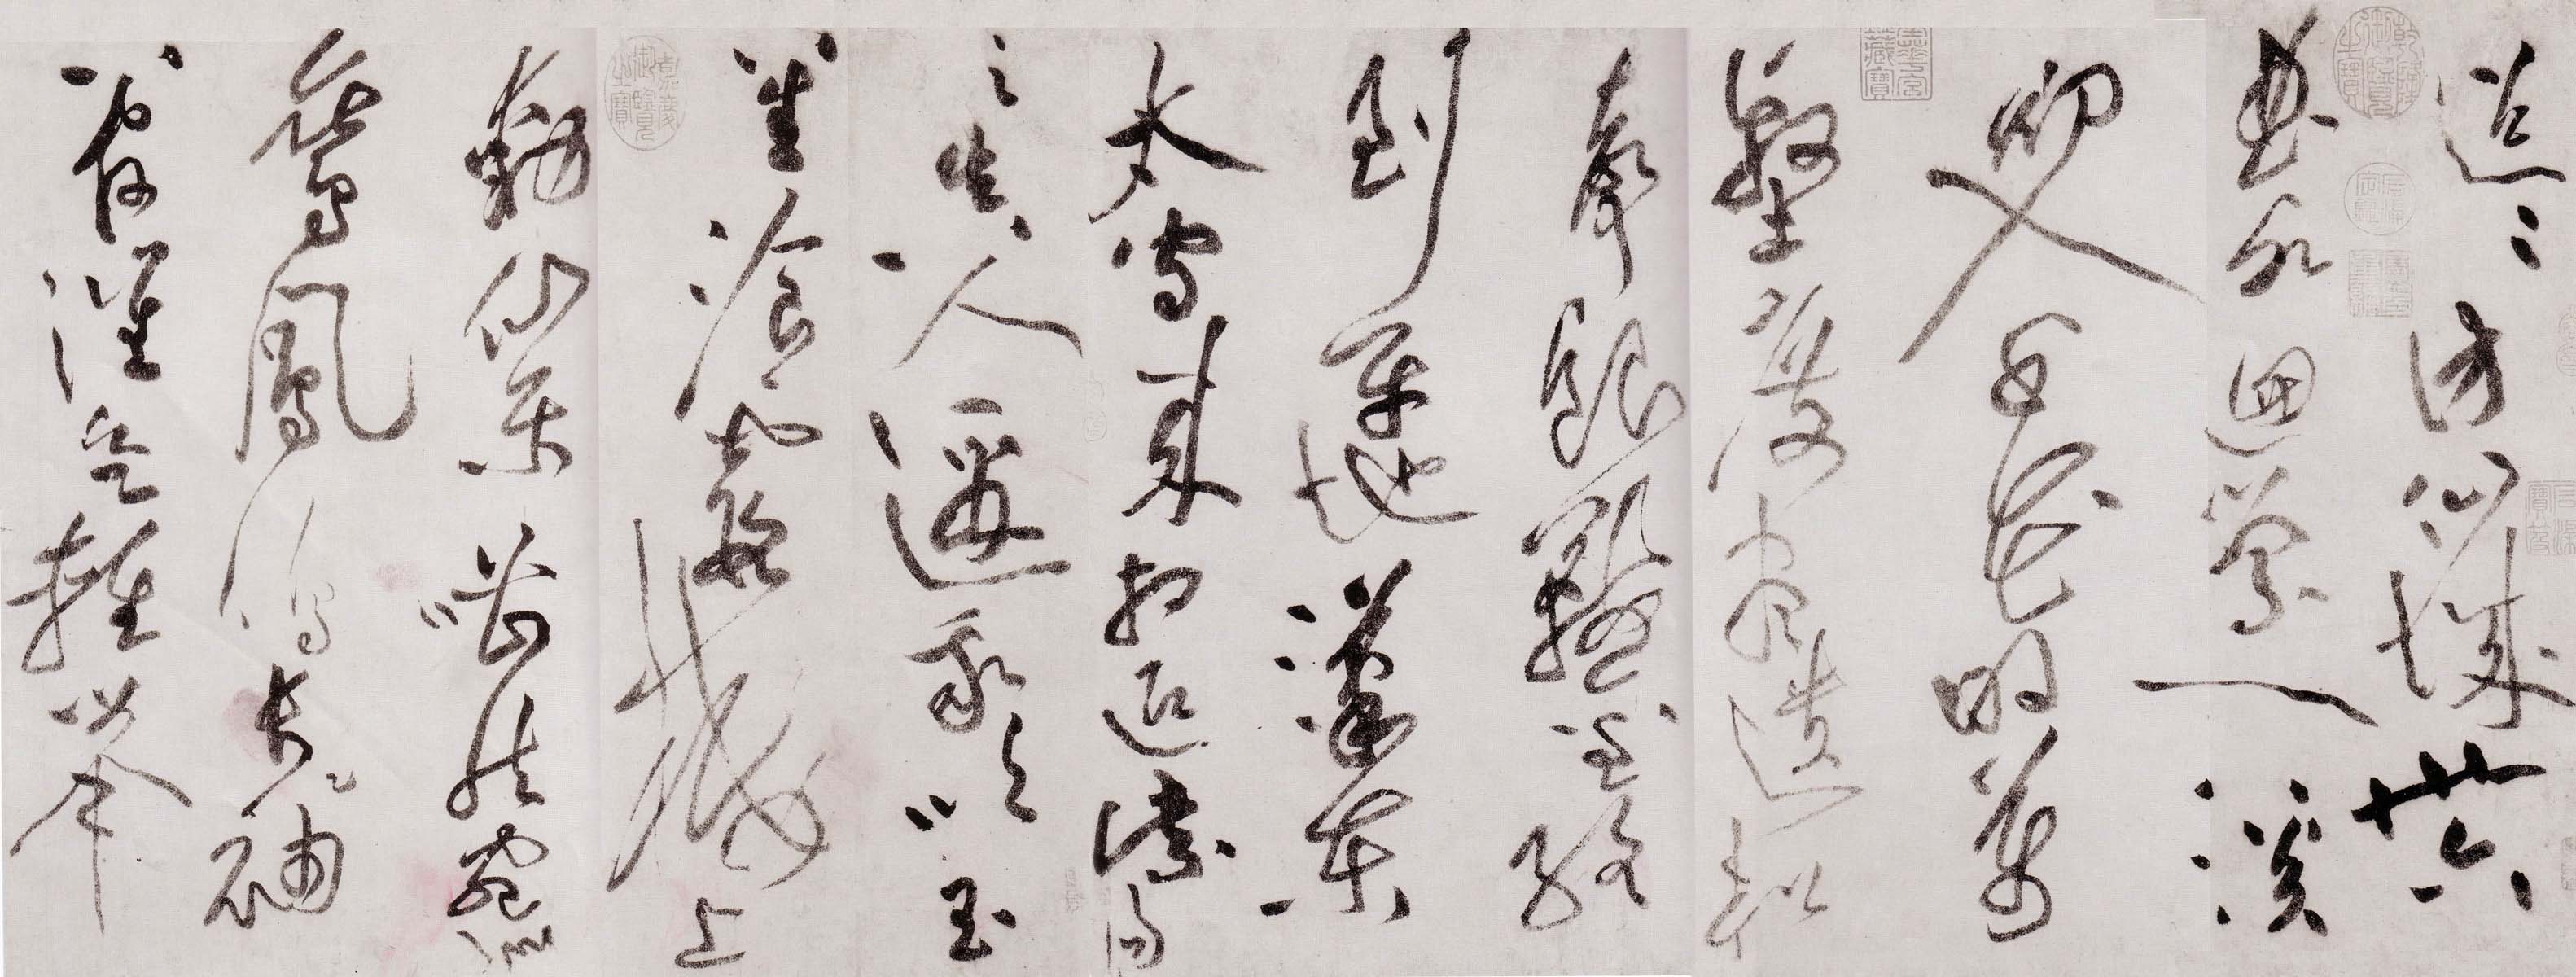 迢〻訪仙城卅六
曲水迴縈一溪
初入千花明萬
壑度盡松
聲銀鞍金絡
到平地漢東
太守來相迎紫陽
之真人邀我吹玉
笙飡霞樓上
動仙樂嘈然宛似
鸞鳳鳴長袖
管催欲輕舉